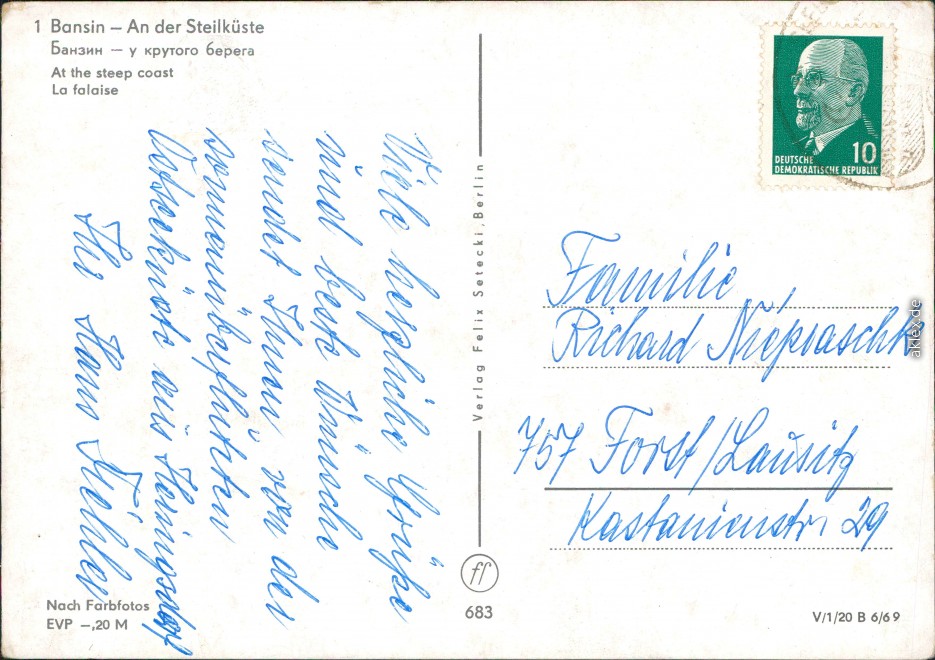 1 Bansin – An der Steilküste
Банзин – у крутого берега
At the steep coast
La falaise
Viele herzliche Grüße
und beste Wünsche
sendet Ihnen von der
sonnenüberfluteten
Ostseeküste aus Heringsdorf
Ihr Hans Köhler
Nach Farbfotos
EVP –,20 M
Verlag Felix Setecki, Berlin
ff
683
10
DEUTSCHE
DEMOKRATISCHE REPUBLIK
Familie
Richard Niepraschk
757 Forst/Lausitz
Kastanienstr. 29
V/1/20 B 6/69
aklex.de